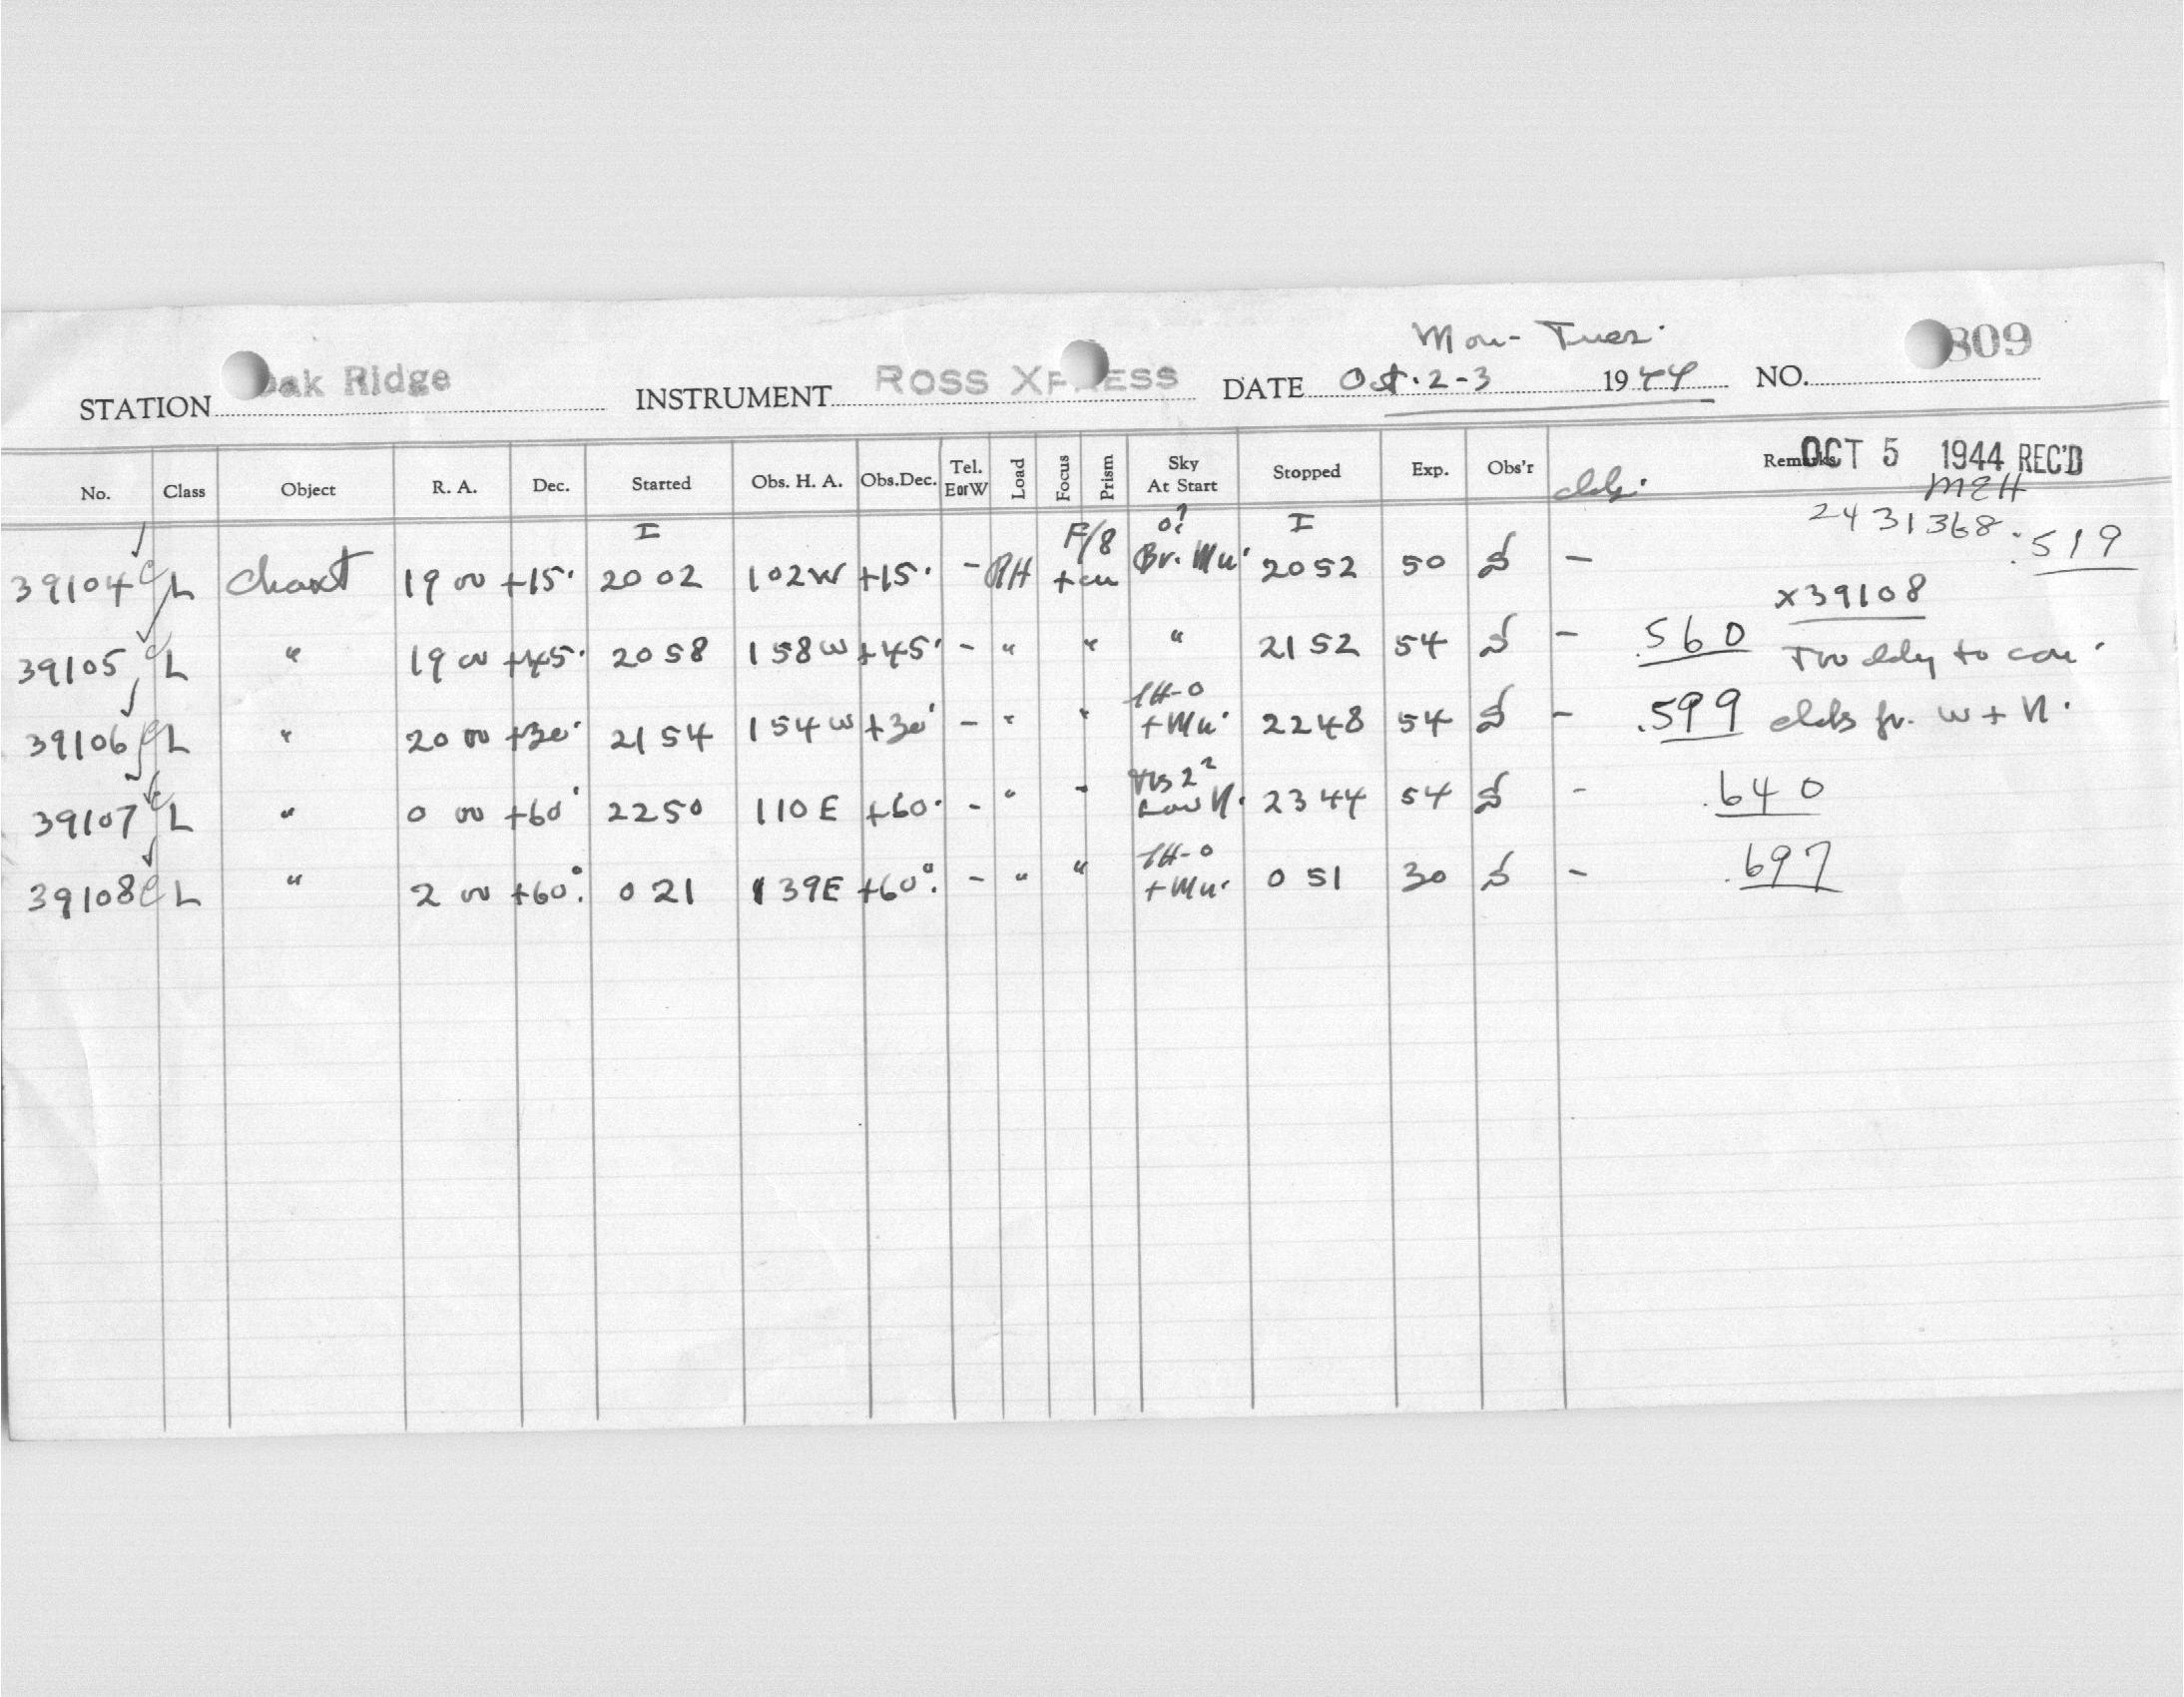 Mon - Tues.
STATION Oak Ridge INSTRUMENT ROSS XPRESS DATE Oct. 2-3 1944 NO. 809
No. Class Object R. A. Dec. Started Obs. H. A. Obs. Dec. Tel. E or W Load Focus Prism Sky At Start Stopped Exp. Obs'r clds. Remarks OCT 5 1944 REC'D
MEH
I F/8 0? I 2431368.519
39104 C L Chart 19 00 +15° 20 02 1 02 W +15° - RH + cu Br. Mn. 20 52 50 -
x39108
39105 C L " 19 00 +45° 20 58 1 58 W +45° - " " " 21 52 54 - .560 Too cldy to con.
39106 C L " 20 00 +30° 21 54 1 54 W +30° - " " TH-0 + Mn. 22 48 54 - .599 clds fr. W + N.
39107 C L " 0 00 +60° 22 50 1 10 E +60° - " " Low N. 23 44 54 - .640
39108 C L " 2 00 +60° 0 21 1 39 E +60° - " " TH-0 + Mn. 0 51 30 - .697